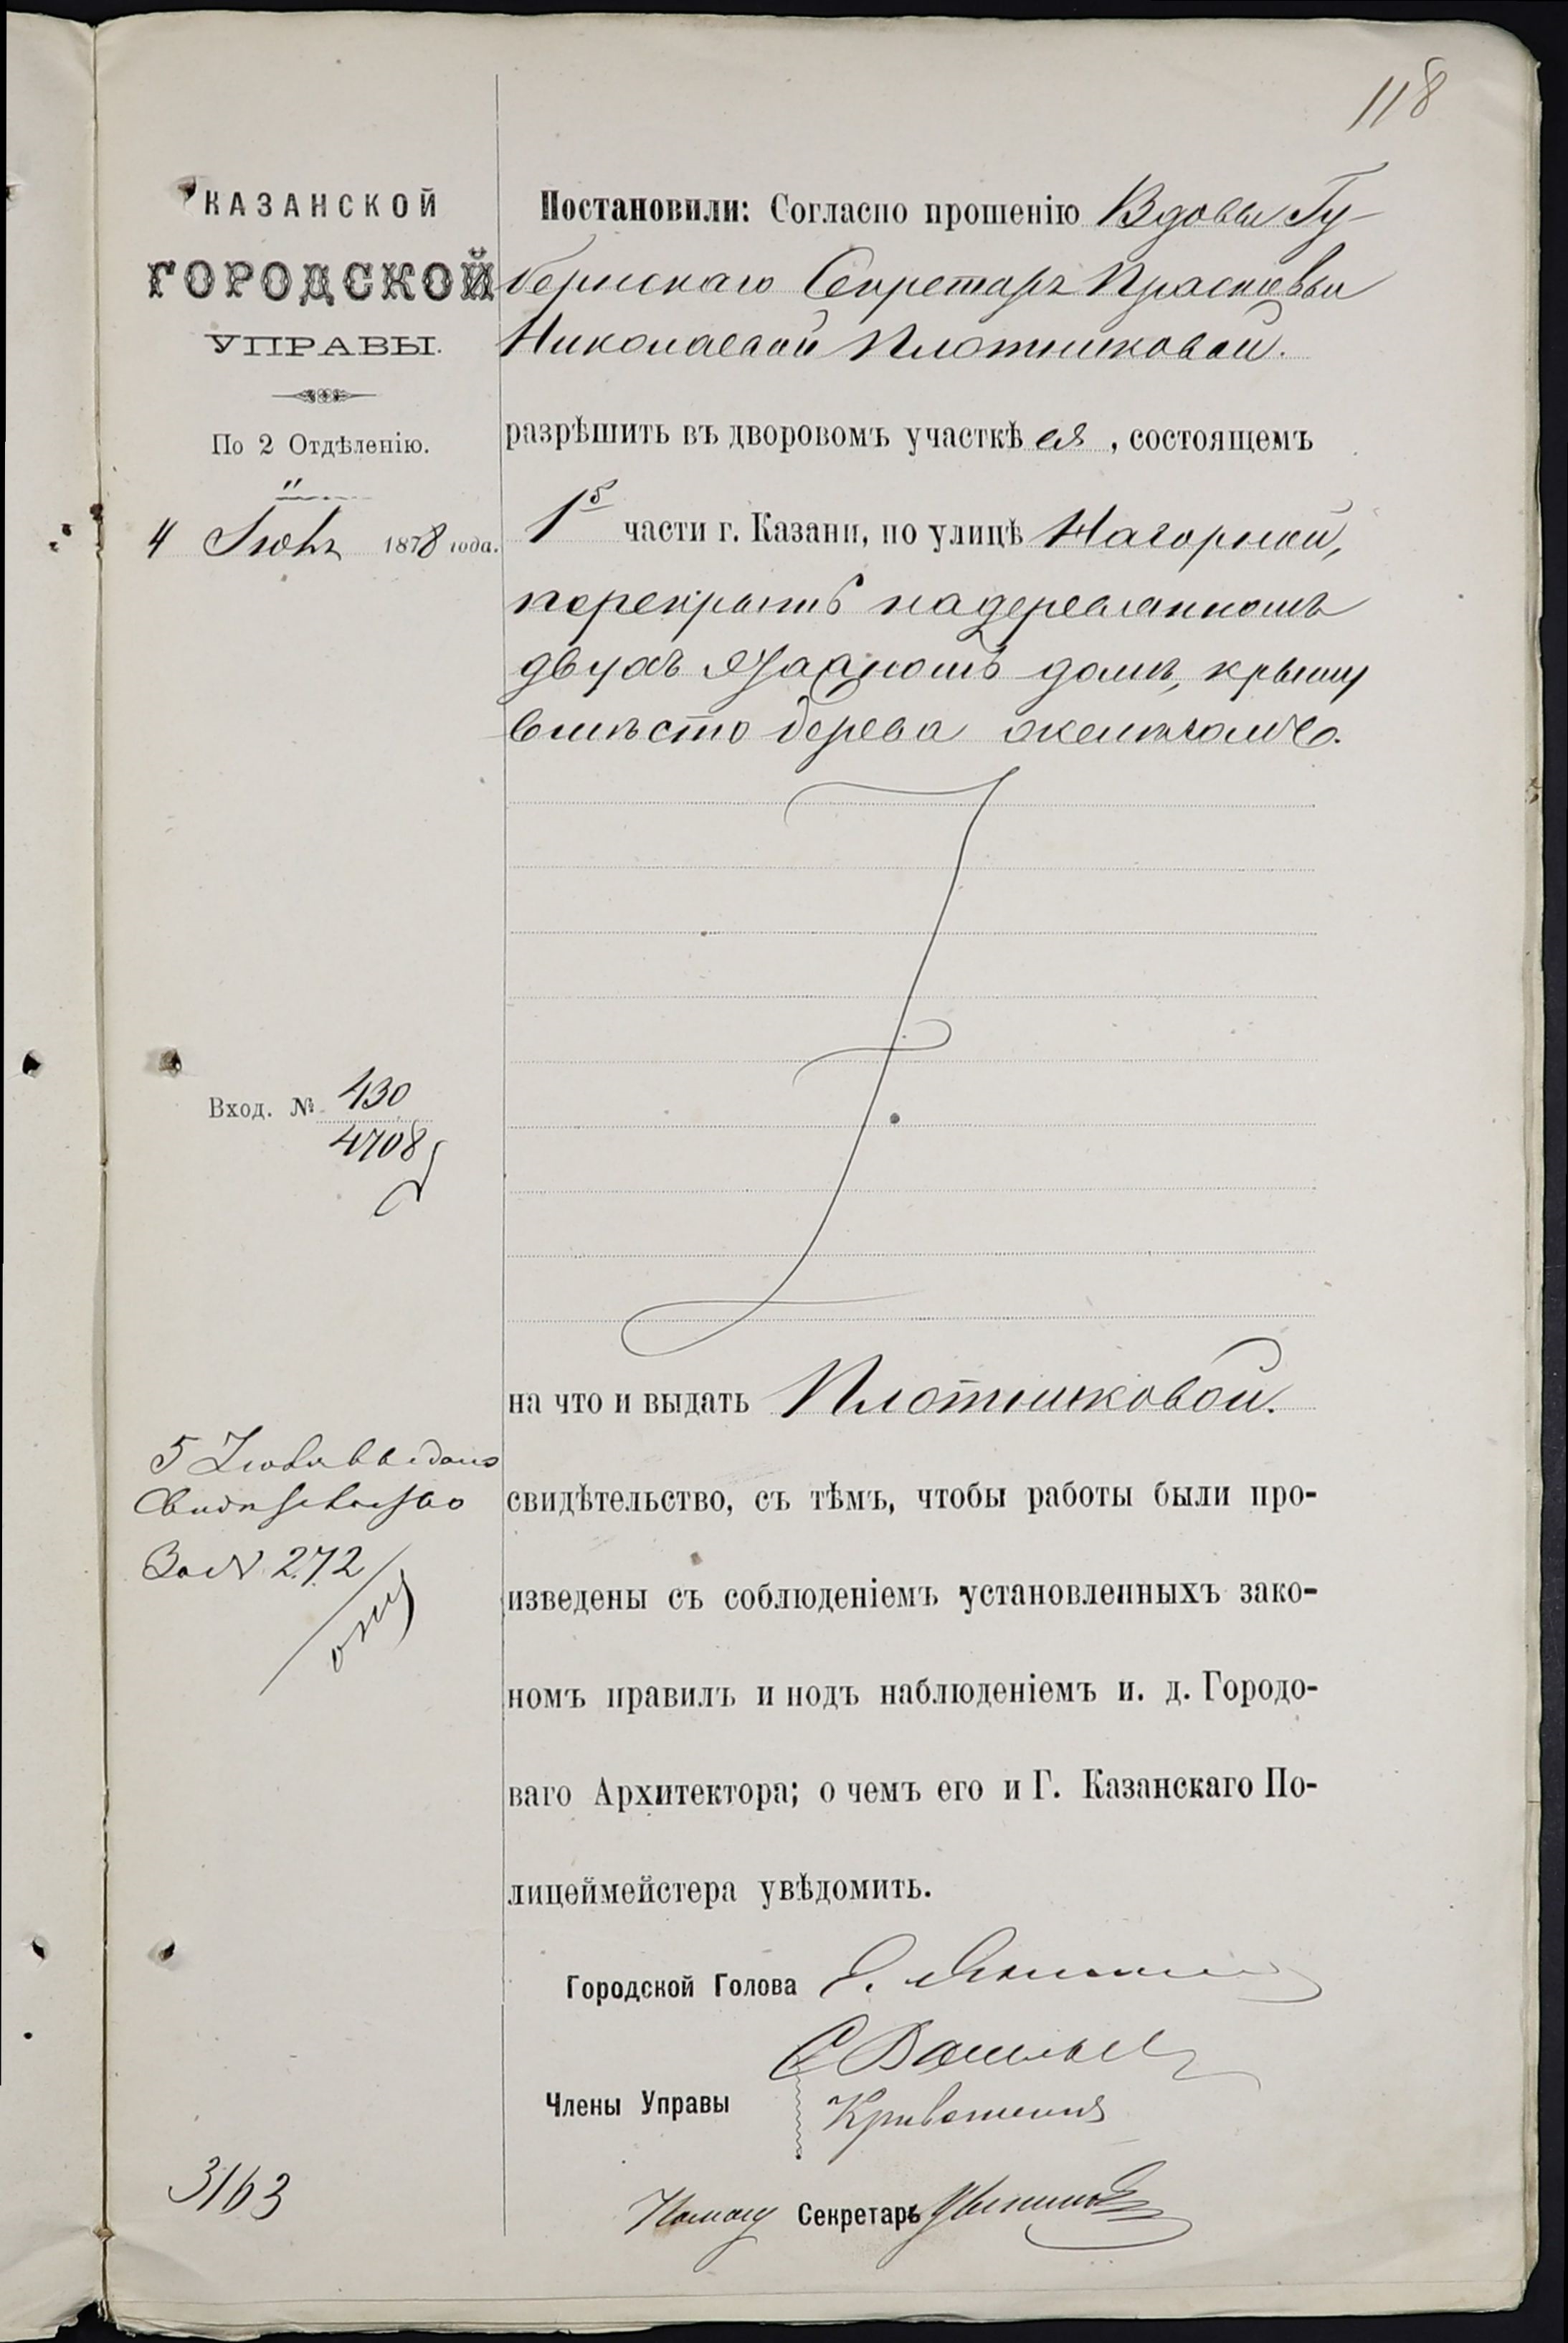 118
КАЗАНСКОЙ
ГОРОДСКОЙ
УПРАВЫ.
По 2 Отдѣленію.
4 Іюня 1878 года.
Вход. № 430
4708
5 Іюля выдано
Свидѣтельство
За № 272
3163
Постановили: Согласно прошенію Вдовы Гу-
бернскаго Секретаря Прасковьи
Николаевой Плотниковой.
разрѣшить въ дворовомъ участкѣ ея, состоящемъ
1й части г. Казани, по улицѣ Нагорной,
перекрыть на деревянномъ
двухъ этажномъ домѣ, крышу
вмѣсто дерева желѣзомъ.
на что и выдать Плотниковой.
свидѣтельство, съ тѣмъ, чтобы работы были про-
изведены съ соблюденіемъ установленныхъ зако-
номъ правилъ и подъ наблюденіемъ и. д. Городо-
ваго Архитектора; о чемъ его и Г. Казанскаго По-
лицеймейстера увѣдомить.
Городской Голова
С Васильев
Члены Управы
Секретарь